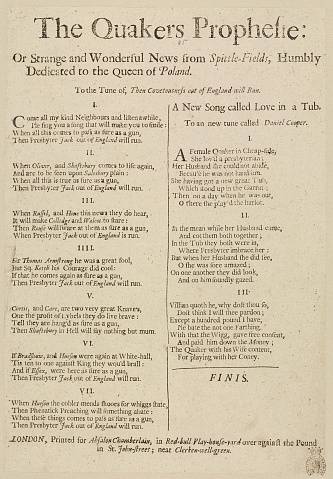 The Quakers Prophesie:
Or Strange and Wonderful News from Spittle-Fields, Humbly
Dedicated to the Queen of Poland.
To the Tune of, Then Covetousness out of England will Run.
I.
Come all my kind Neighbours and listen awhile,
I'le sing you a song that will make you to smile:
When all this comes to pass as sure as a gun,
Then Presbyter Jack out of England will run.
II.
When Oliver, and Shaftsbury comes to life again,
And are to be seen upon Salisbury Plain:
When all this is true as sure as a gun,
Then Presbyter Jack out of England will run.
III.
When Russel, and Hone this news they do hear,
It will make Colledge and Walcot to stare:
Then Rouse will swear at them as sure as a gun,
When Presbyter Jack out of England is run.
IIII.
Sir Thomas Armstrong he was a great fool,
But Sq. Ketch his Courage did cool:
If that he comes again as sure as a gun,
Then Presbyter Jack out of England will run.
V.
Curtis, and Care, are two very great Knaves,
One the profit of Lybels they do live brave:
Tell they are hang'd as sure as a gun,
Then Shaftsbury in Hell will sing nothing but mum.
VI.
If Bradshaw, and Hewson were again at White-hall,
Tis ten to one against King they wou'd brall:
And if Essex, were here as sure as a gun,
Then Presbyter Jack out of England will run.
VII.
When Hewson the cobler mends shooes for whiggs that,
Then Phenatick Preaching will something abate:
When these things comes to pass as sure as a gun,
Then Presbyter Jack out of England will run.
A New Song called Love in a Tub.
To an new tune called Daniel Cooper.
I.
A Female Quaker in Cheap-side,
She lov'd a presbyterian;
Her Husband she could not abide,
Because he was not handsom.
She having got a new great Tub,
Which stood up in the Garret;
Then on a day when he was out,
O there she play'd the harlot.
II.
In the mean while her Husband came,
And cot them both together;
In the Tub they both were in,
Where Presbyter imbrace her:
But when her Husband she did see,
O she was sore amazed;
On one another they did look,
And on him sadly gazed.
III.
Villian quoth he, why dost thou so,
Dost think I will thee pardon;
Except a hundred pound I have,
I'le bate the not one Farthing,
With that the Wigg, gave free consent,
And paid him down the Money;
The Quaker with his Wife content,
For playing with her Coney.
FINIS.
LONDON, Printed for Absalon Chamberlain, in Red-bull Play-house-yard over against the Pound
in St. John-street; near Clerken-well-green.